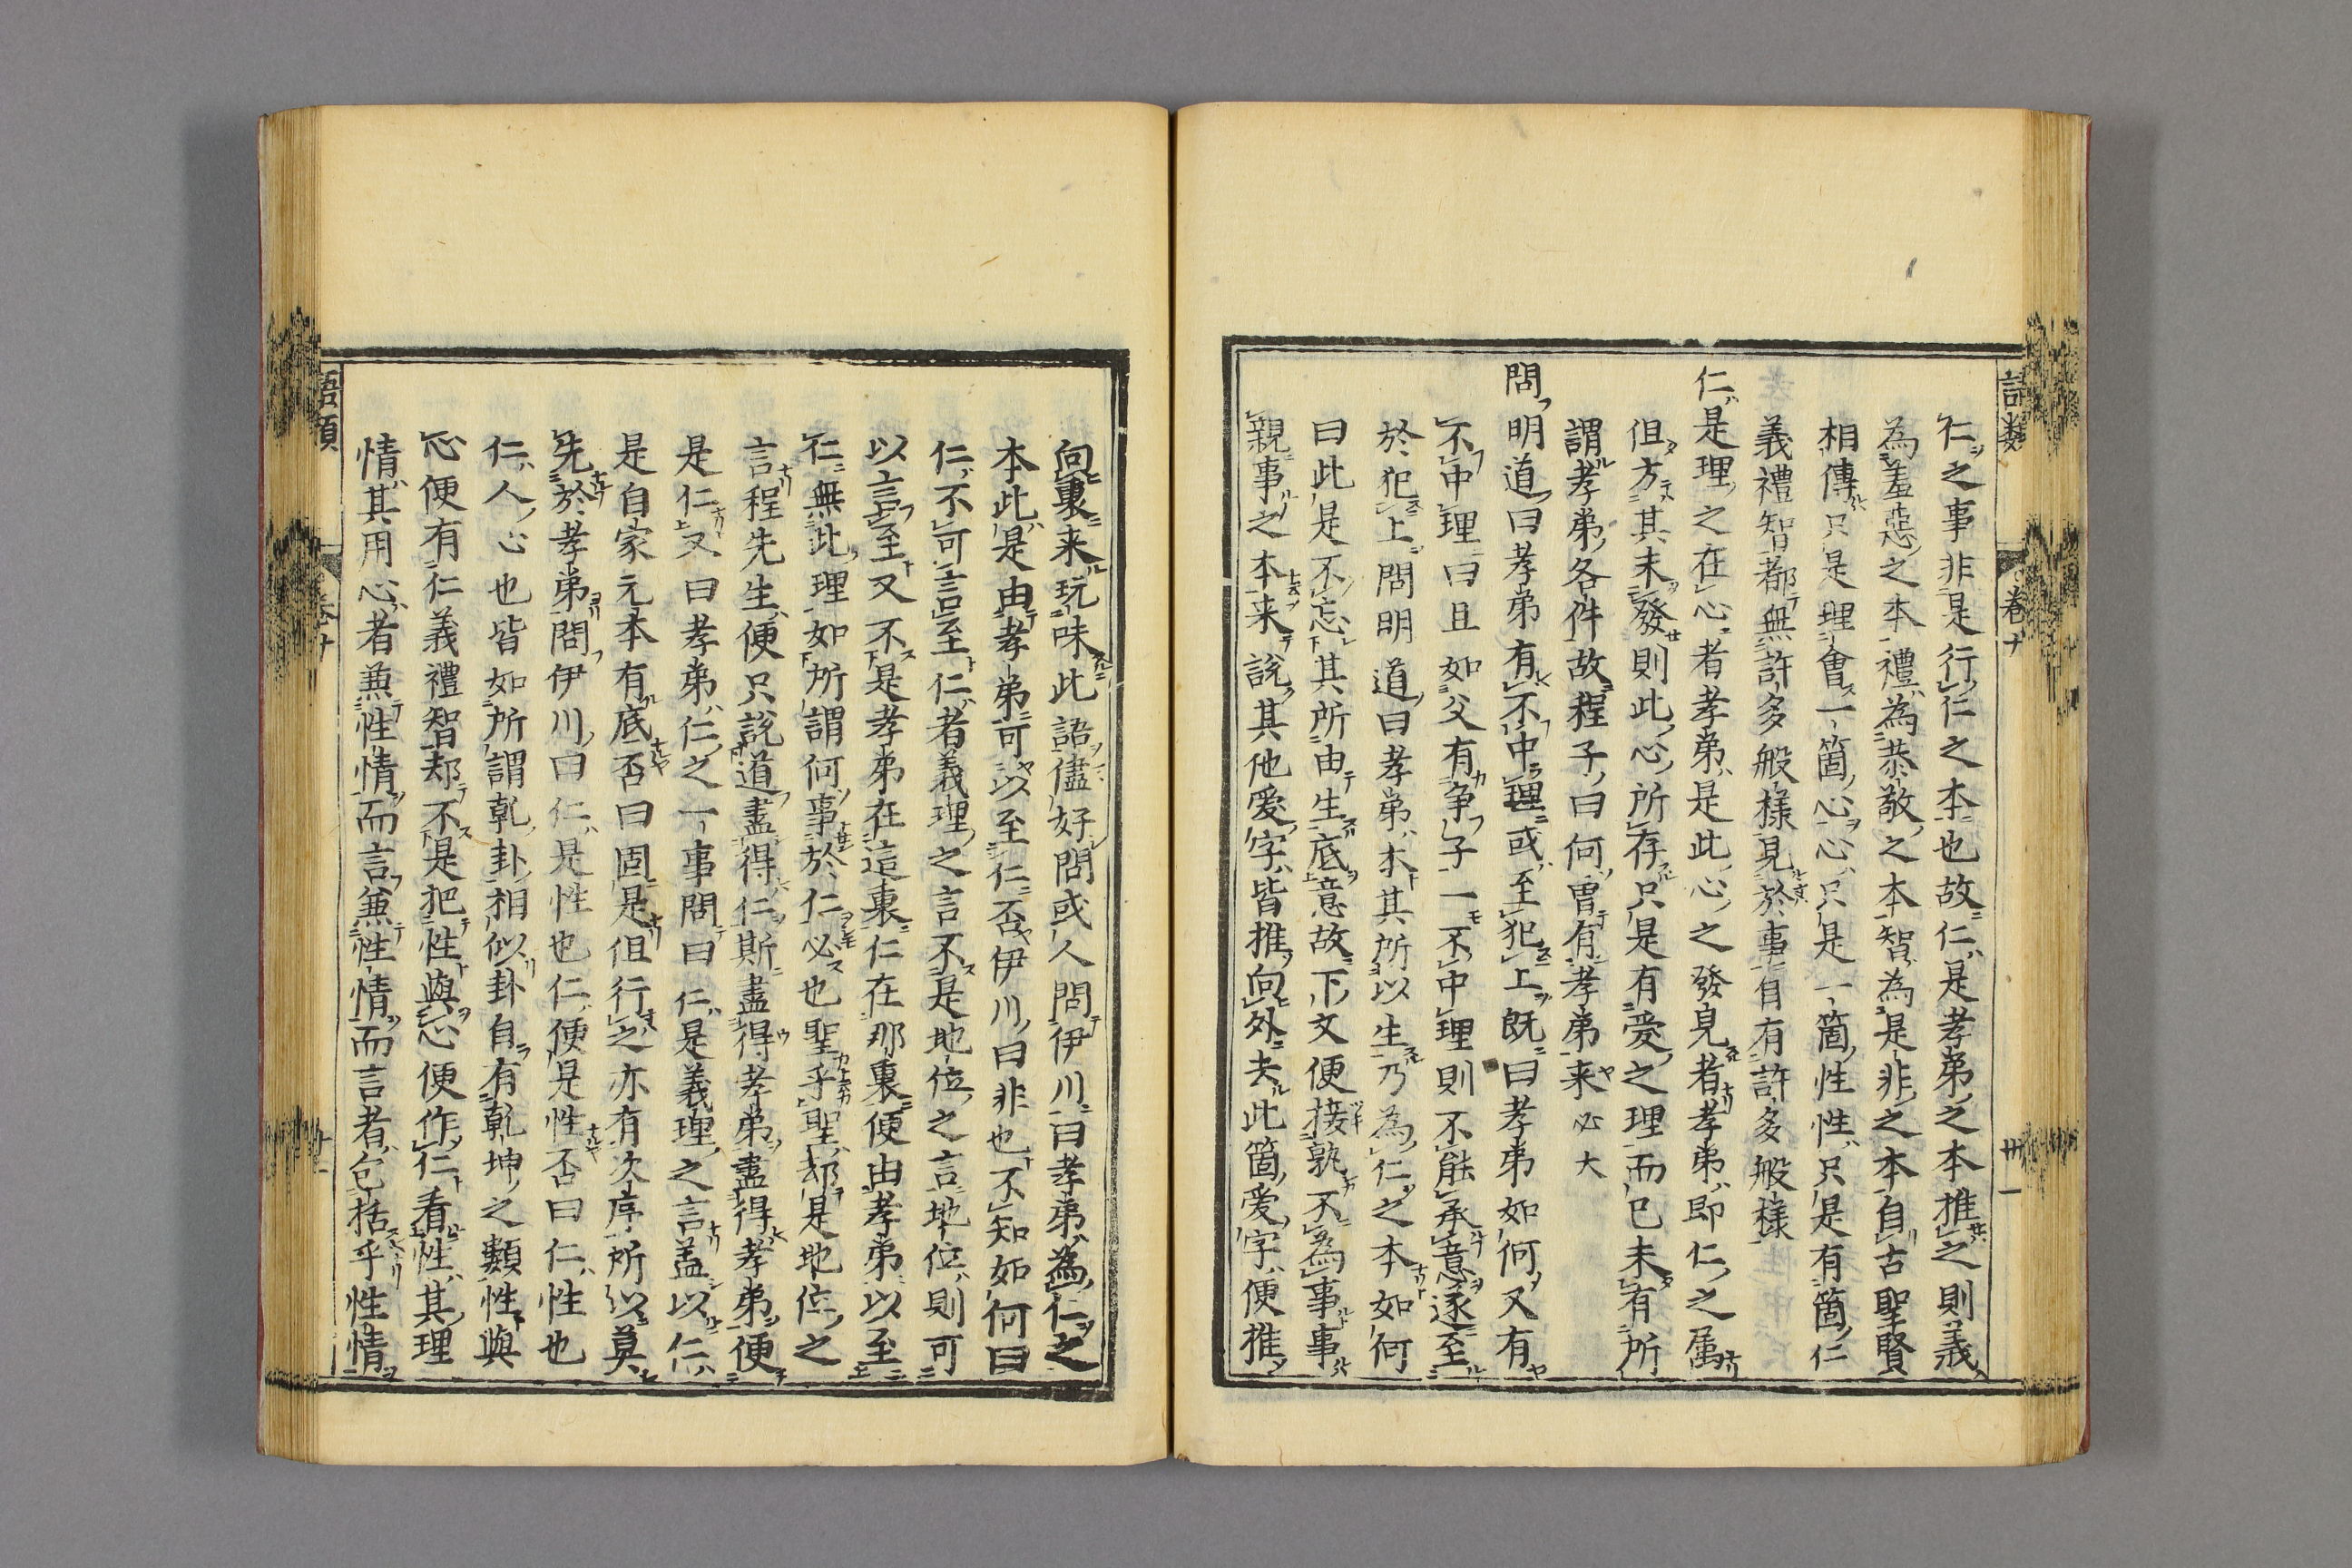 語類
卷十
卅一
仁之事非是行仁之本也故仁是孝弟之本推之則義
為羞惡之本禮為恭敬之本智為是非之本自古聖賢
相傳只是理會一箇心心只是一箇性性只是有箇仁
義禮智都無許多般樣見於事自有許多般樣
仁是理之在心者孝弟是此心之發見者孝弟即仁之属
但方其未發則此心所存只是有愛之理而已未有所
謂孝弟各件故程子曰何曽有孝弟来必大
問明道曰孝弟有不中理或至犯上既曰孝弟如何又有
不中理曰且如父有争子一不中理則不能承意遂至
於犯上問明道曰孝弟本其所以生乃為仁之本如何
曰此是不忘其所由生底意故下文便接孰不為事事
親事之本来說其他愛字皆推向外去此箇愛字便推
向裏来玩味此語儘好問或人問伊川曰孝弟為仁之
本此是由孝弟可以至仁否伊川曰非也不知如何曰
仁不可言至仁者義理之言不是地位之言地位則可
以言至又不是孝弟在這裏仁在那裏便由孝弟以至
仁無此理如所謂何事於仁必也聖乎聖却是地位之
言程先生便只說道盡得仁斯盡得孝弟盡得孝弟便
是仁又曰孝弟仁之一事問曰仁是義理之言盖以仁
是自家元本有底否曰固是但行之亦有次序所以莫
先於孝弟問伊川曰仁是性也仁便是性否曰仁性也
仁人心也皆如所謂乾卦相似卦自有乾坤之類性與
心便有仁義禮智却不是把性與心便作仁看性其理
情其用心者兼性情而言兼性情而言者包括乎性情
語類
卷十